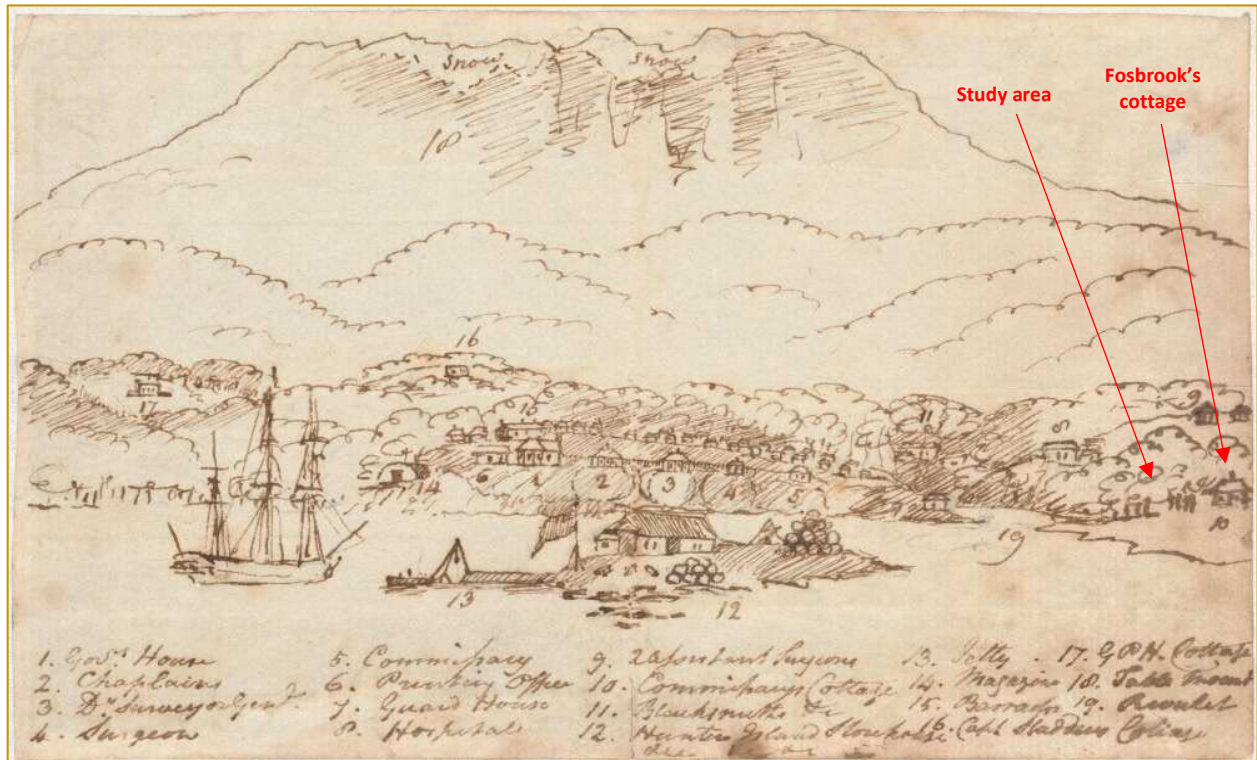 Study area
Fosbrook's
cottage
Snow
Snow
18
16
17
15
11
8
9
14
6
1
2
3
4
5
10
19
13
12
1. Govt. House
2. Chaplains
3. Dy Surveyor Genl.
4. Surgeon
5. Commissary
6. Printing Office
7. Guard House
8. Hospital
9. 2 Assistant Surgeons
10. Commissarys Cottage
11. Blacksmiths &c
12. Hunter Island Storehouse
13. Jetty
14. Magazine
15. Barracks
16. Capt Sladdens Cottage
17. G.P.H. Cottage
18. Table Mount
19. Rivulet